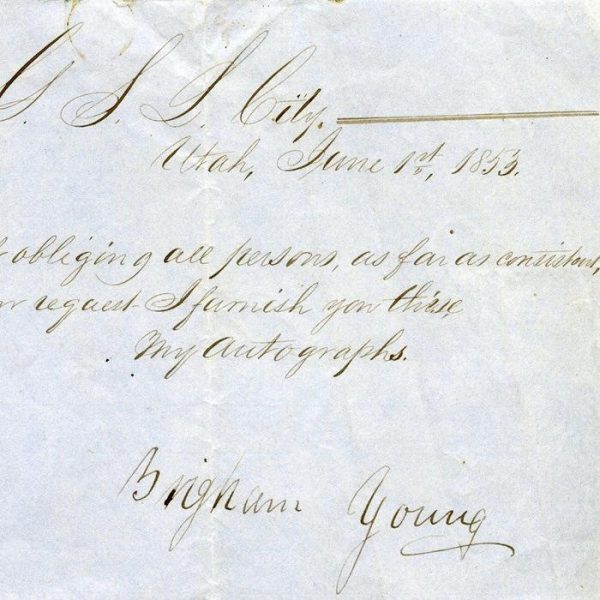 G. S. L. City.
Utah, June 1st, 1853.
obliging all persons, as far as consistent,
request I furnish you these,
My Autographs.
Brigham Young